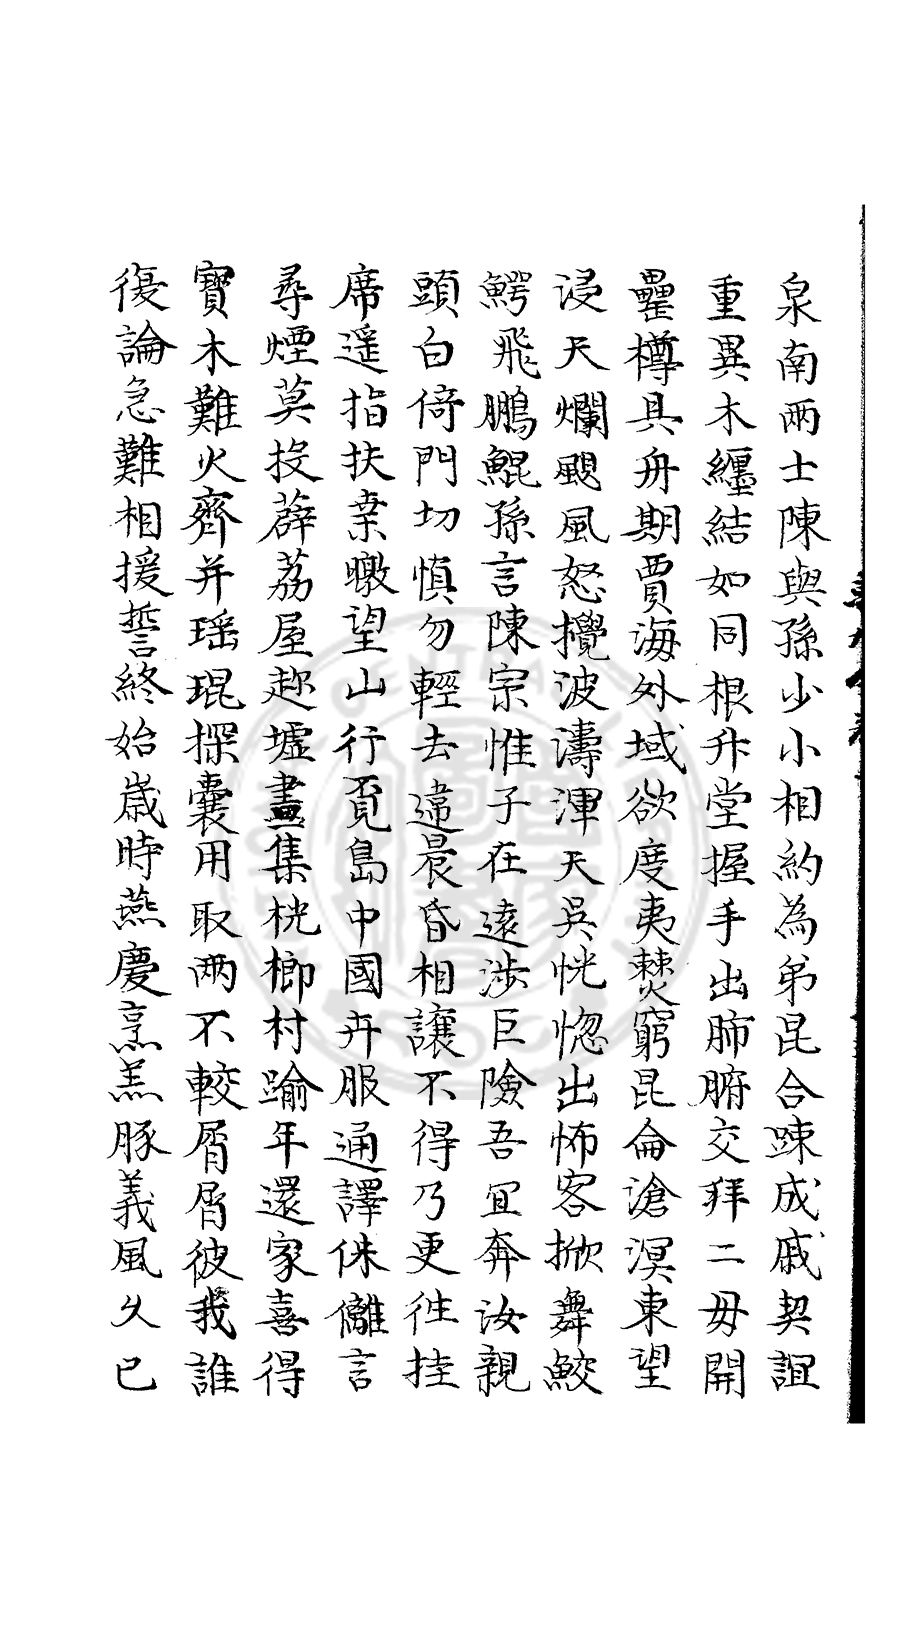 泉南兩士陳與孫少小相約為弟昆合踈成戚契誼
重異木纏結如同根升堂握手出肺腑交拜二母開
罍樽具舟期賈海外域欲度夷僰窮昆侖滄溟東望
浸天爛颶風怒攪波濤渾天吳恍惚出怖客掀舞鮫
鰐飛鵬鯤孫言陳宗惟子在遠涉巨險吾宜奔汝親
頭白倚門切慎勿輕去違晨昏相讓不得乃更徃挂
席遥指扶桒暾望山行覓島中國卉服通譯侏儷言
尋煙莫投薜荔屋趂墟晝集桄榔村踰年還家喜得
寳木難火齊并瑶琨探囊用取兩不較屑屑彼我誰
復論急難相援誓終始歲時燕慶烹羔豚義風乆已